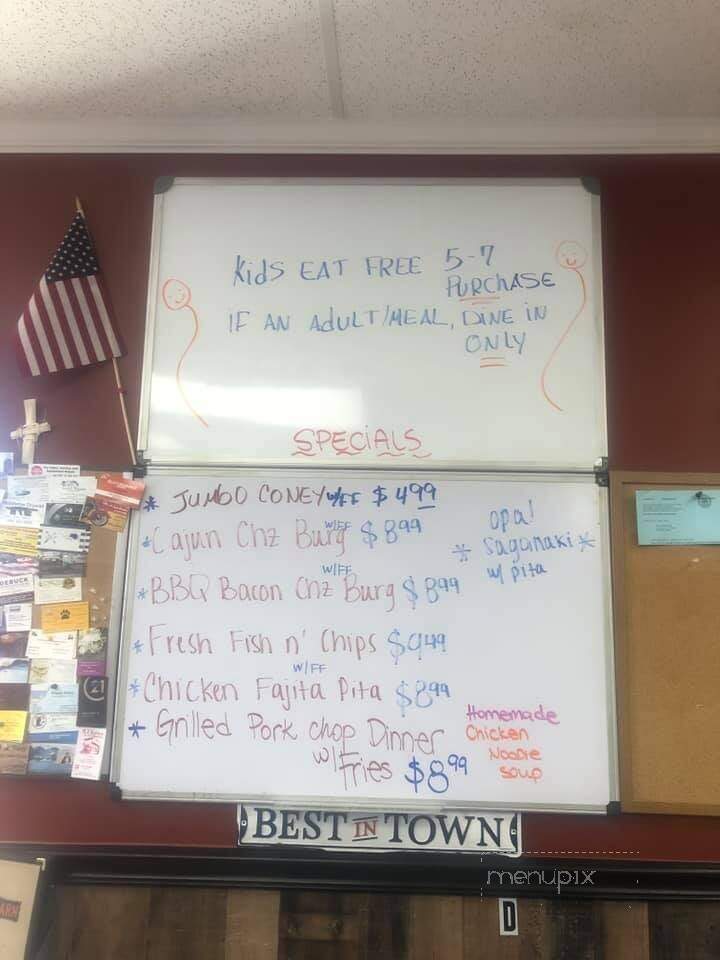 Kids EAT FREE 5-7
PURCHASE
IF AN AdULT/MEAL, DINE iN
ONLY
SPECiALS
* JUMBO CONEY w/FF $4.99
w/FF
*Cajun Chz Burg $8.99
w/FF
*BBQ Bacon Chz Burg $8.99
*Fresh Fish n' Chips $9.49
w/FF
*Chicken Fajita Pita $8.99
* Grilled Pork chop Dinner
w/Fries $8.99
opa!
* Saganaki *
w/ pita
Homemade
Chicken
Noodle
Soup
BEST IN TOWN
menupix
D